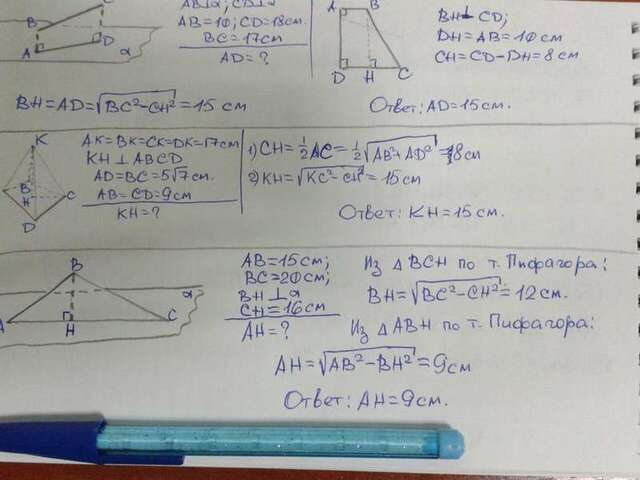 AB⊥α; CD⊥α
AB=10; CD=18см.
BC=17см
AD=?
B
A
D
α
A B
D H C
BH⊥CD;
DH=AB=10см
CH=CD-DH=8см
BH=AD=√BC²-CH²=15 см
Ответ: AD=15см.
K
B
H
C
D
AK=BK=CK=DK=17см
KH⊥ABCD
AD=BC=5√7см.
AB=CD=9см
KH=?
1) CH=½AC=½√AB²+AD²=8см
2) KH=√KC²-CH²=15см
Ответ: KH=15см.
B
α
A H C
AB=15см;
BC=20см;
BH⊥α
CH=16см
AH=?
Из △BCH по т. Пифагора:
BH=√BC²-CH²=12см.
Из △ABH по т. Пифагора:
AH=√AB²-BH²=9см
Ответ: AH=9см.